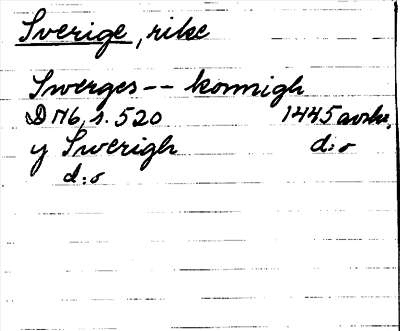 Sverige, rike
Swerges -- konnigh
D N6, s. 520 1445 avskr.
y Swerigh d:o
d:o